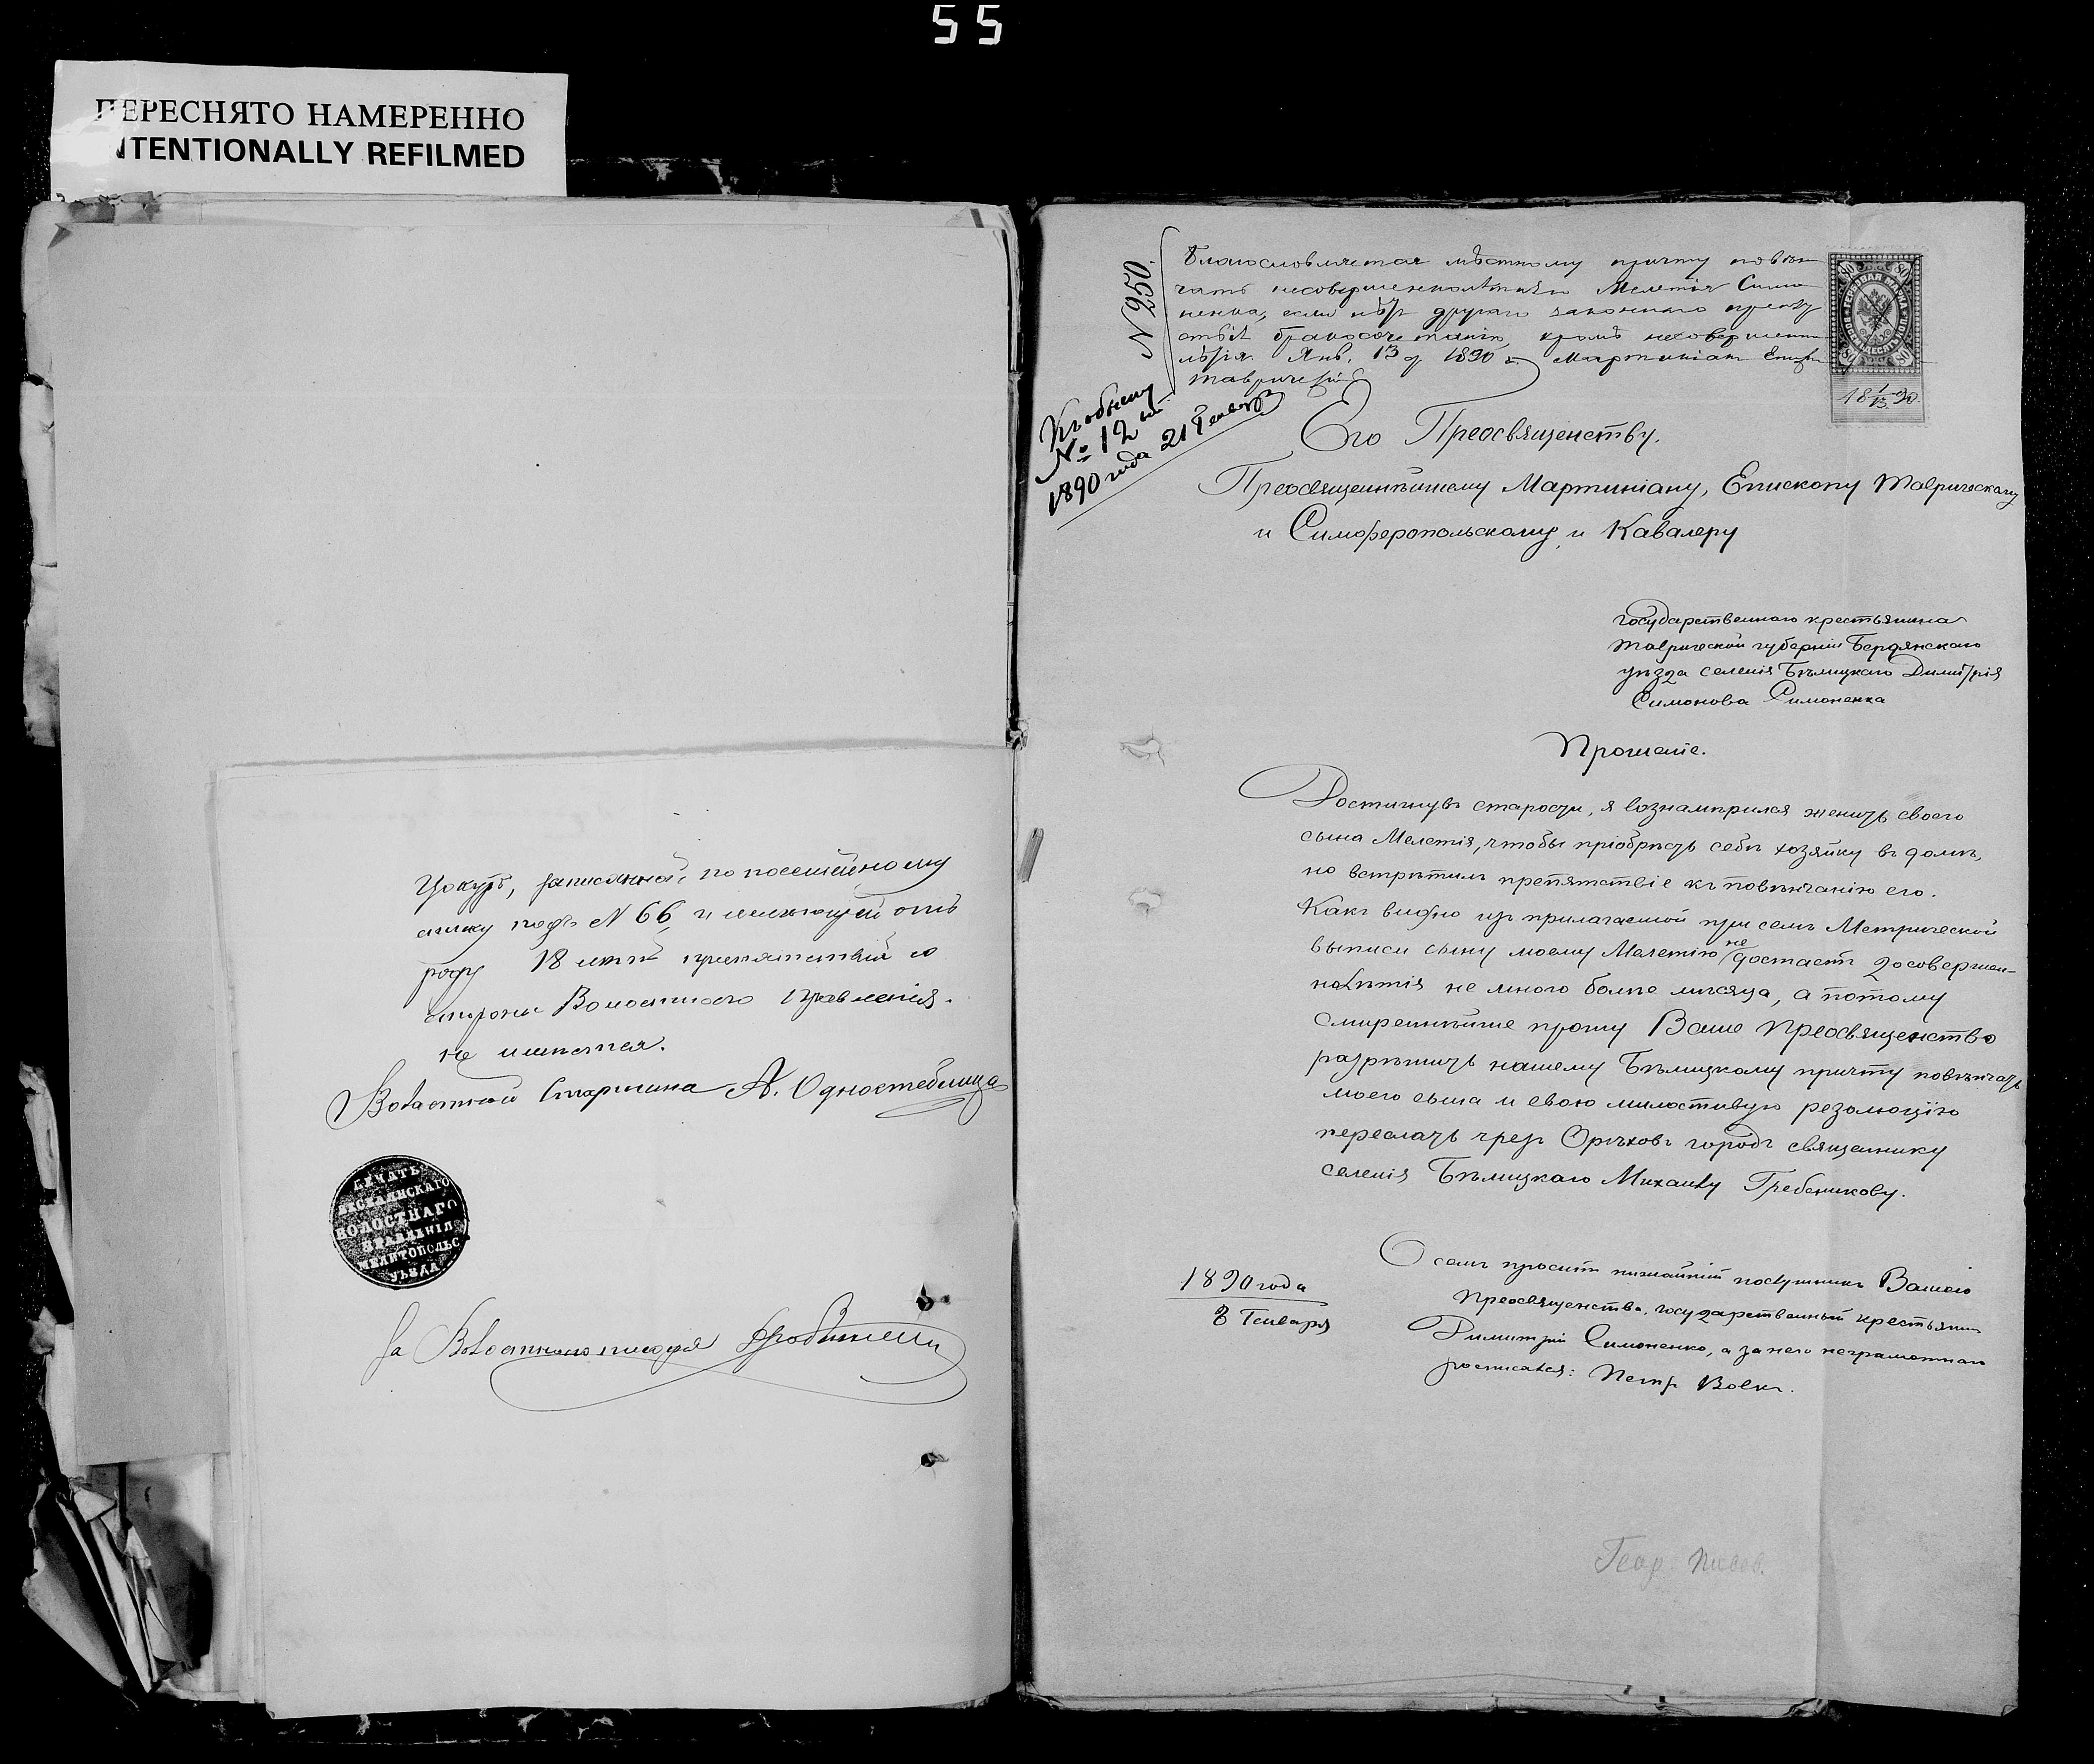 55
ПЕРЕСНЯТО НАМЕРЕННО
INTENTIONALLY REFILMED
записанной по посемейному
списку подъ N 66, и имеющей отъ
роду 18 летъ препятствій со
стороны Волостного Правленія
не имеется.
Волостной Старшина А.
ПЕЧАТЬ
ВОЛОСТНАГО
ПРАВЛЕНІЯ
МЕЛИТОПОЛЬС
УѢЗДА
За Волостного писаря
N 250.
Благословляется мѣстному причту повѣн
чать несовершеннолѣтняго Мелетія Симо
ненка, если нѣтъ другаго законнаго препят
ствія бракосочетанію, кромѣ несовершенно
лѣтія. Янв. 13 д 1890 г. Мартиніанъ Еписк
Таврическій
Къ обыску
№ 12 му
1890 года 21 Генваря
80 80
80 80
18 1/13 90
Его Преосвященству.
Преосвященнѣйшему Мартиніану, Епископу Таврическому
и Симферопольскому и Кавалеру
Государственнаго крестьянина
Таврической губерніи Бердянскаго
уѣзда селенія Бѣлицкаго Димитрія
Симонова Симоненка
Прошеніе.
Достигнувъ старости, я вознамѣрился женить своего
сына Мелетія, чтобы пріобрѣсть себѣ хозяйку въ домъ,
но встрѣтилъ препятствіе къ повѣнчанію его.
Какъ видно изъ прилагаемой при семъ Метрической
выписи сыну моему Мелетію не достаетъ до совершен-
нолѣтія не много болѣе мѣсяца, а потому
смиреннѣйше прошу Ваше Преосвященство
разрѣшить нашему Бѣлицкому причту повѣнчать
моего сына и свою милостивую резолюцію
переслать чрезъ Орѣховъ городъ священнику
селенія Бѣлицкаго Михаилу Гребеникову.
О семъ проситъ нижайшій послушникъ Вашего
Преосвященства, государственный крестьянинъ
Димитрій Симоненко, а за него неграмотнаго
росписался: Петръ Волкъ.
1890 года
8 Генваря